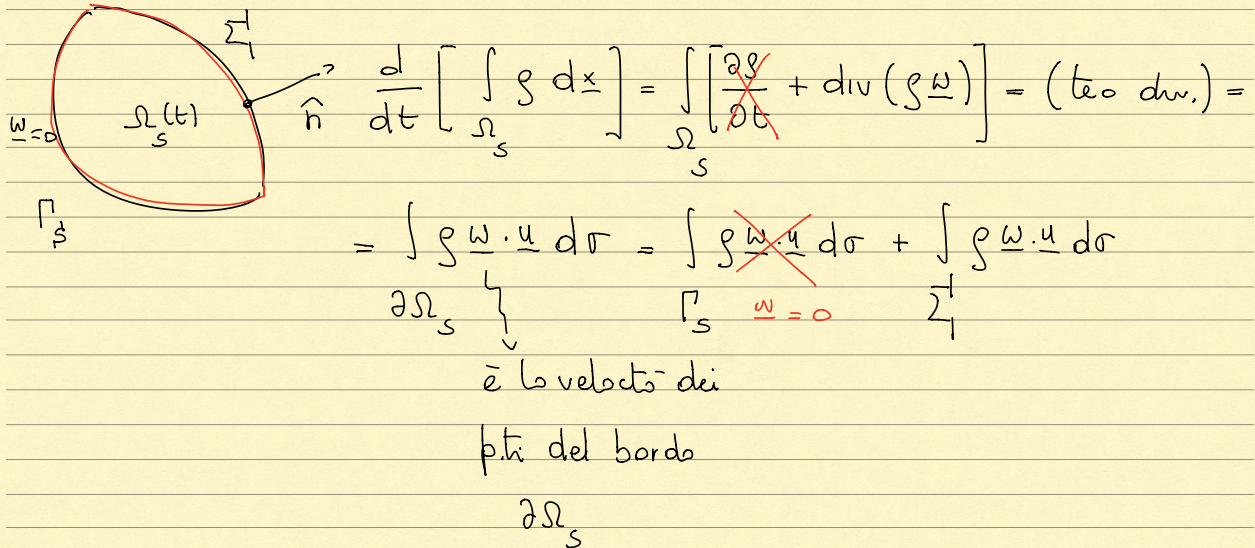 Σ
n̂
w̲=0
Ω_s(t)
Γ_s
d/dt [ ∫_{Ω_s} ρ dx̲ ] = ∫_{Ω_s} [ ∂ρ/∂t + div (ρ w̲) ] = (teo div.) =
= ∫_{∂Ω_s} ρ w̲ · n̲ dσ = ∫_{Γ_s} ρ w̲ · n̲ dσ + ∫_Σ ρ w̲ · n̲ dσ
w̲ = 0
è la velocità dei
p.ti del bordo
∂Ω_s